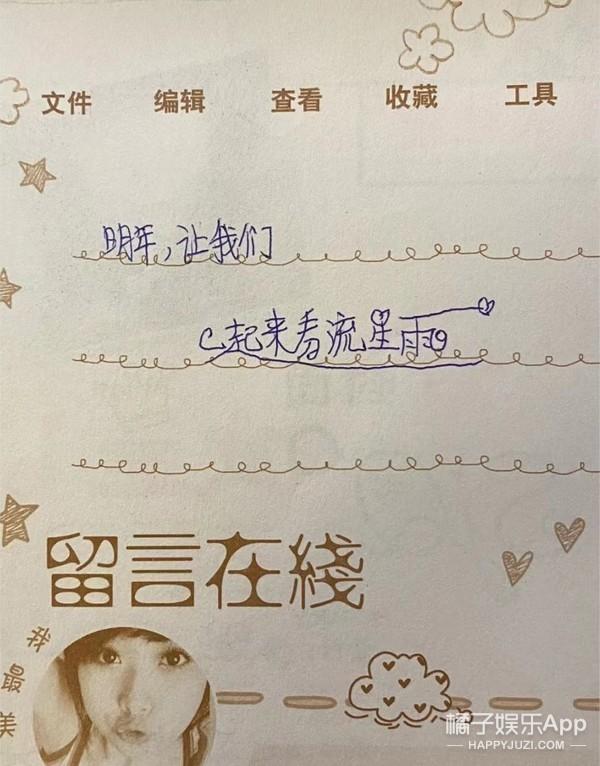 文件 编辑 查看 收藏 工具
明年,让我们
一起来看流星雨
留言在綫
我最美
橘子娱乐App
HAPPYJUZI.COM